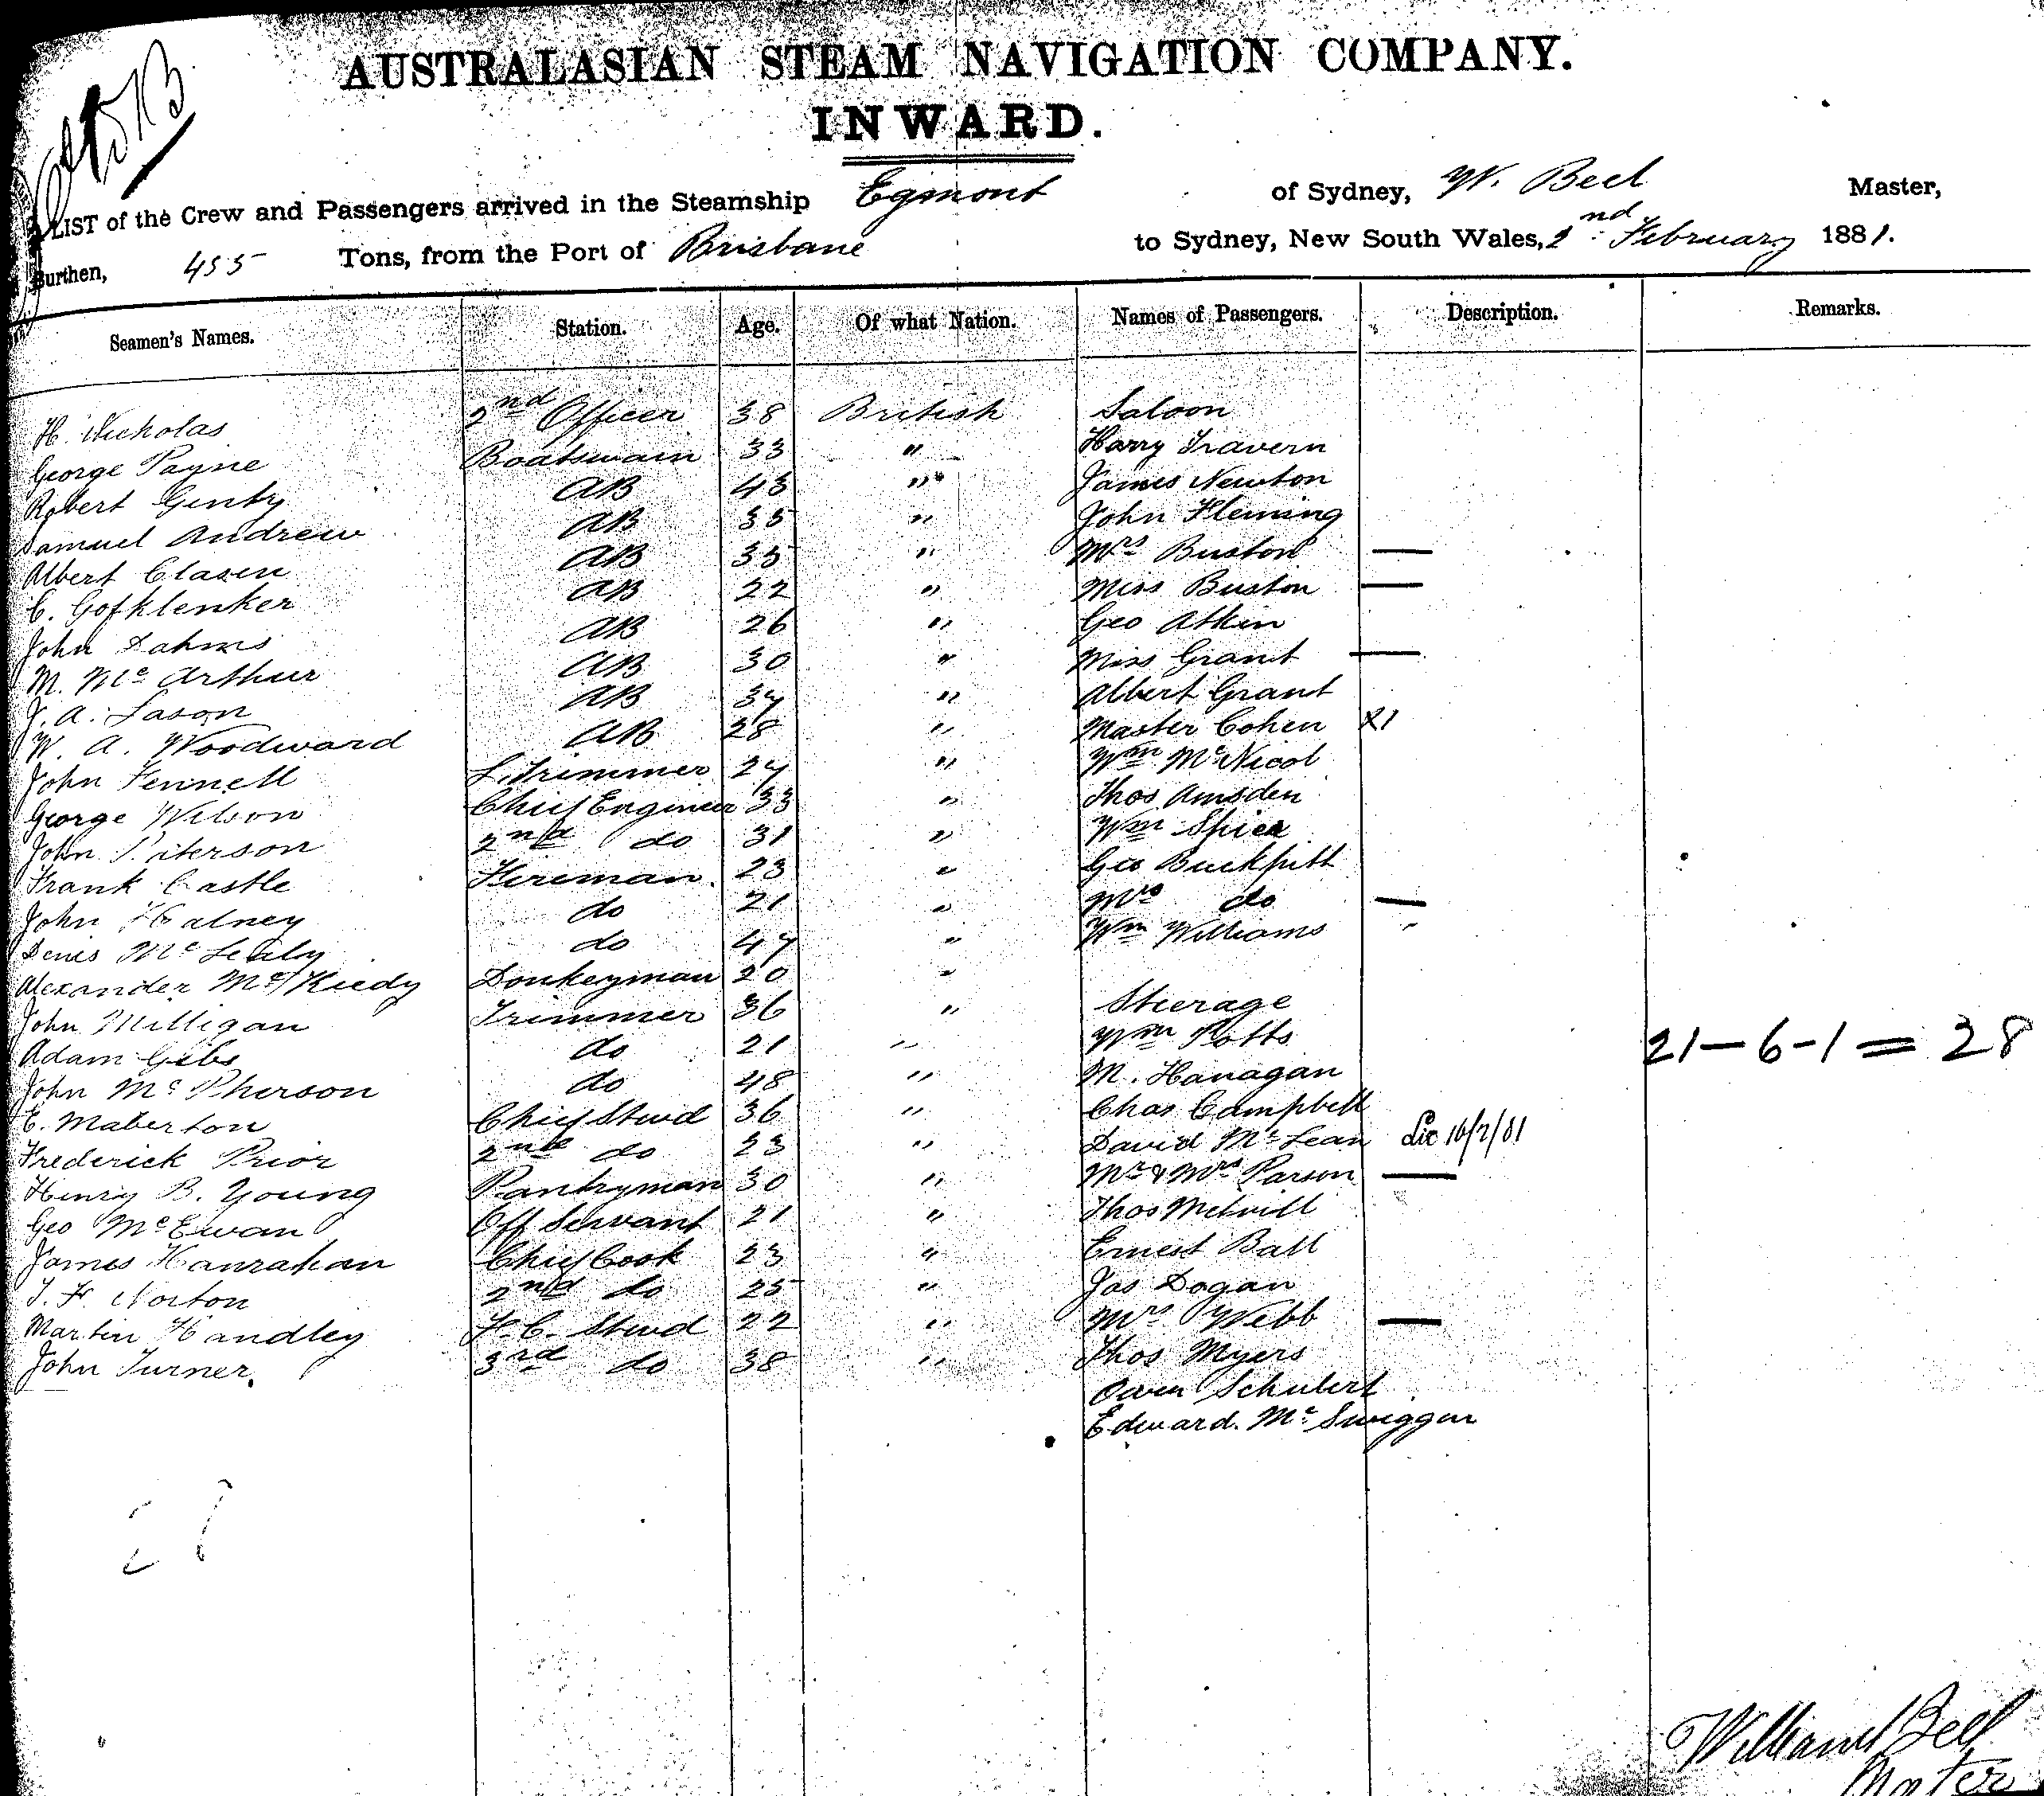 AUSTRALASIAN STEAM NAVIGATION COMPANY.
INWARD.
LIST of the Crew and Passengers arrived in the Steamship Egmont of Sydney, W. Bell Master,
Burthen, 455 Tons, from the Port of Brisbane to Sydney, New South Wales, 2nd February 1881.
Seamen's Names. Station. Age. Of what Nation. Names of Passengers. Description. Remarks.
H. Nicholas 2nd Officer 38 British Saloon
George Payne Boatswain 33 " Harry Travern
Robert Genty AB 43 " James Newton
Samuel Andrew AB 35 " John Fleming
Albert Clasen AB 35 " Mrs Buston —
C. Gofklenker AB 22 " Miss Buston —
John Dahms AB 26 " Geo Atkin
M. Mc Arthur AB 30 " Miss Grant —
J. A. Jason AB 37 " Albert Grant
W. A. Woodward AB 28 " Master Cohen X1
John Fennell L. Trimmer 27 " Wm McNicol
George Wilson Chief Engineer 33 " Thos Amsden
John Paterson 2nd do 31 " Wm Spice
Frank Castle Fireman 23 " Geo Buckpitt
John Halney do 21 " Mrs do —
Denis Mc do 47 " Wm Williams
Alexander Mc Kudy Donkeyman 20 "
John Milligan Trimmer 36 " Steerage
Adam Gibs do 21 " Wm Potts
John Mc Pherson do 48 " M. Hanagan 21-6-1=28
E. Maberton Chief Stwd 36 " Chas Campbell
Frederick Prior 2nd do 23 " David McLean 16/2/81
Henry B. Young Pantryman 30 " Mr & Mrs Parson —
Geo McEwan Off Servant 21 " Thos Melvill
James Hanrahan Chief Cook 23 " Ernest Ball
T. F. Norton 2nd do 25 " Jas Dogan
Martin Handley F.C. Stwd 22 " Mrs Webb —
John Turner. 3rd do 38 " Thos Myers
Owen Schubert
Edward. Mc Swiggan
William Bell
Master